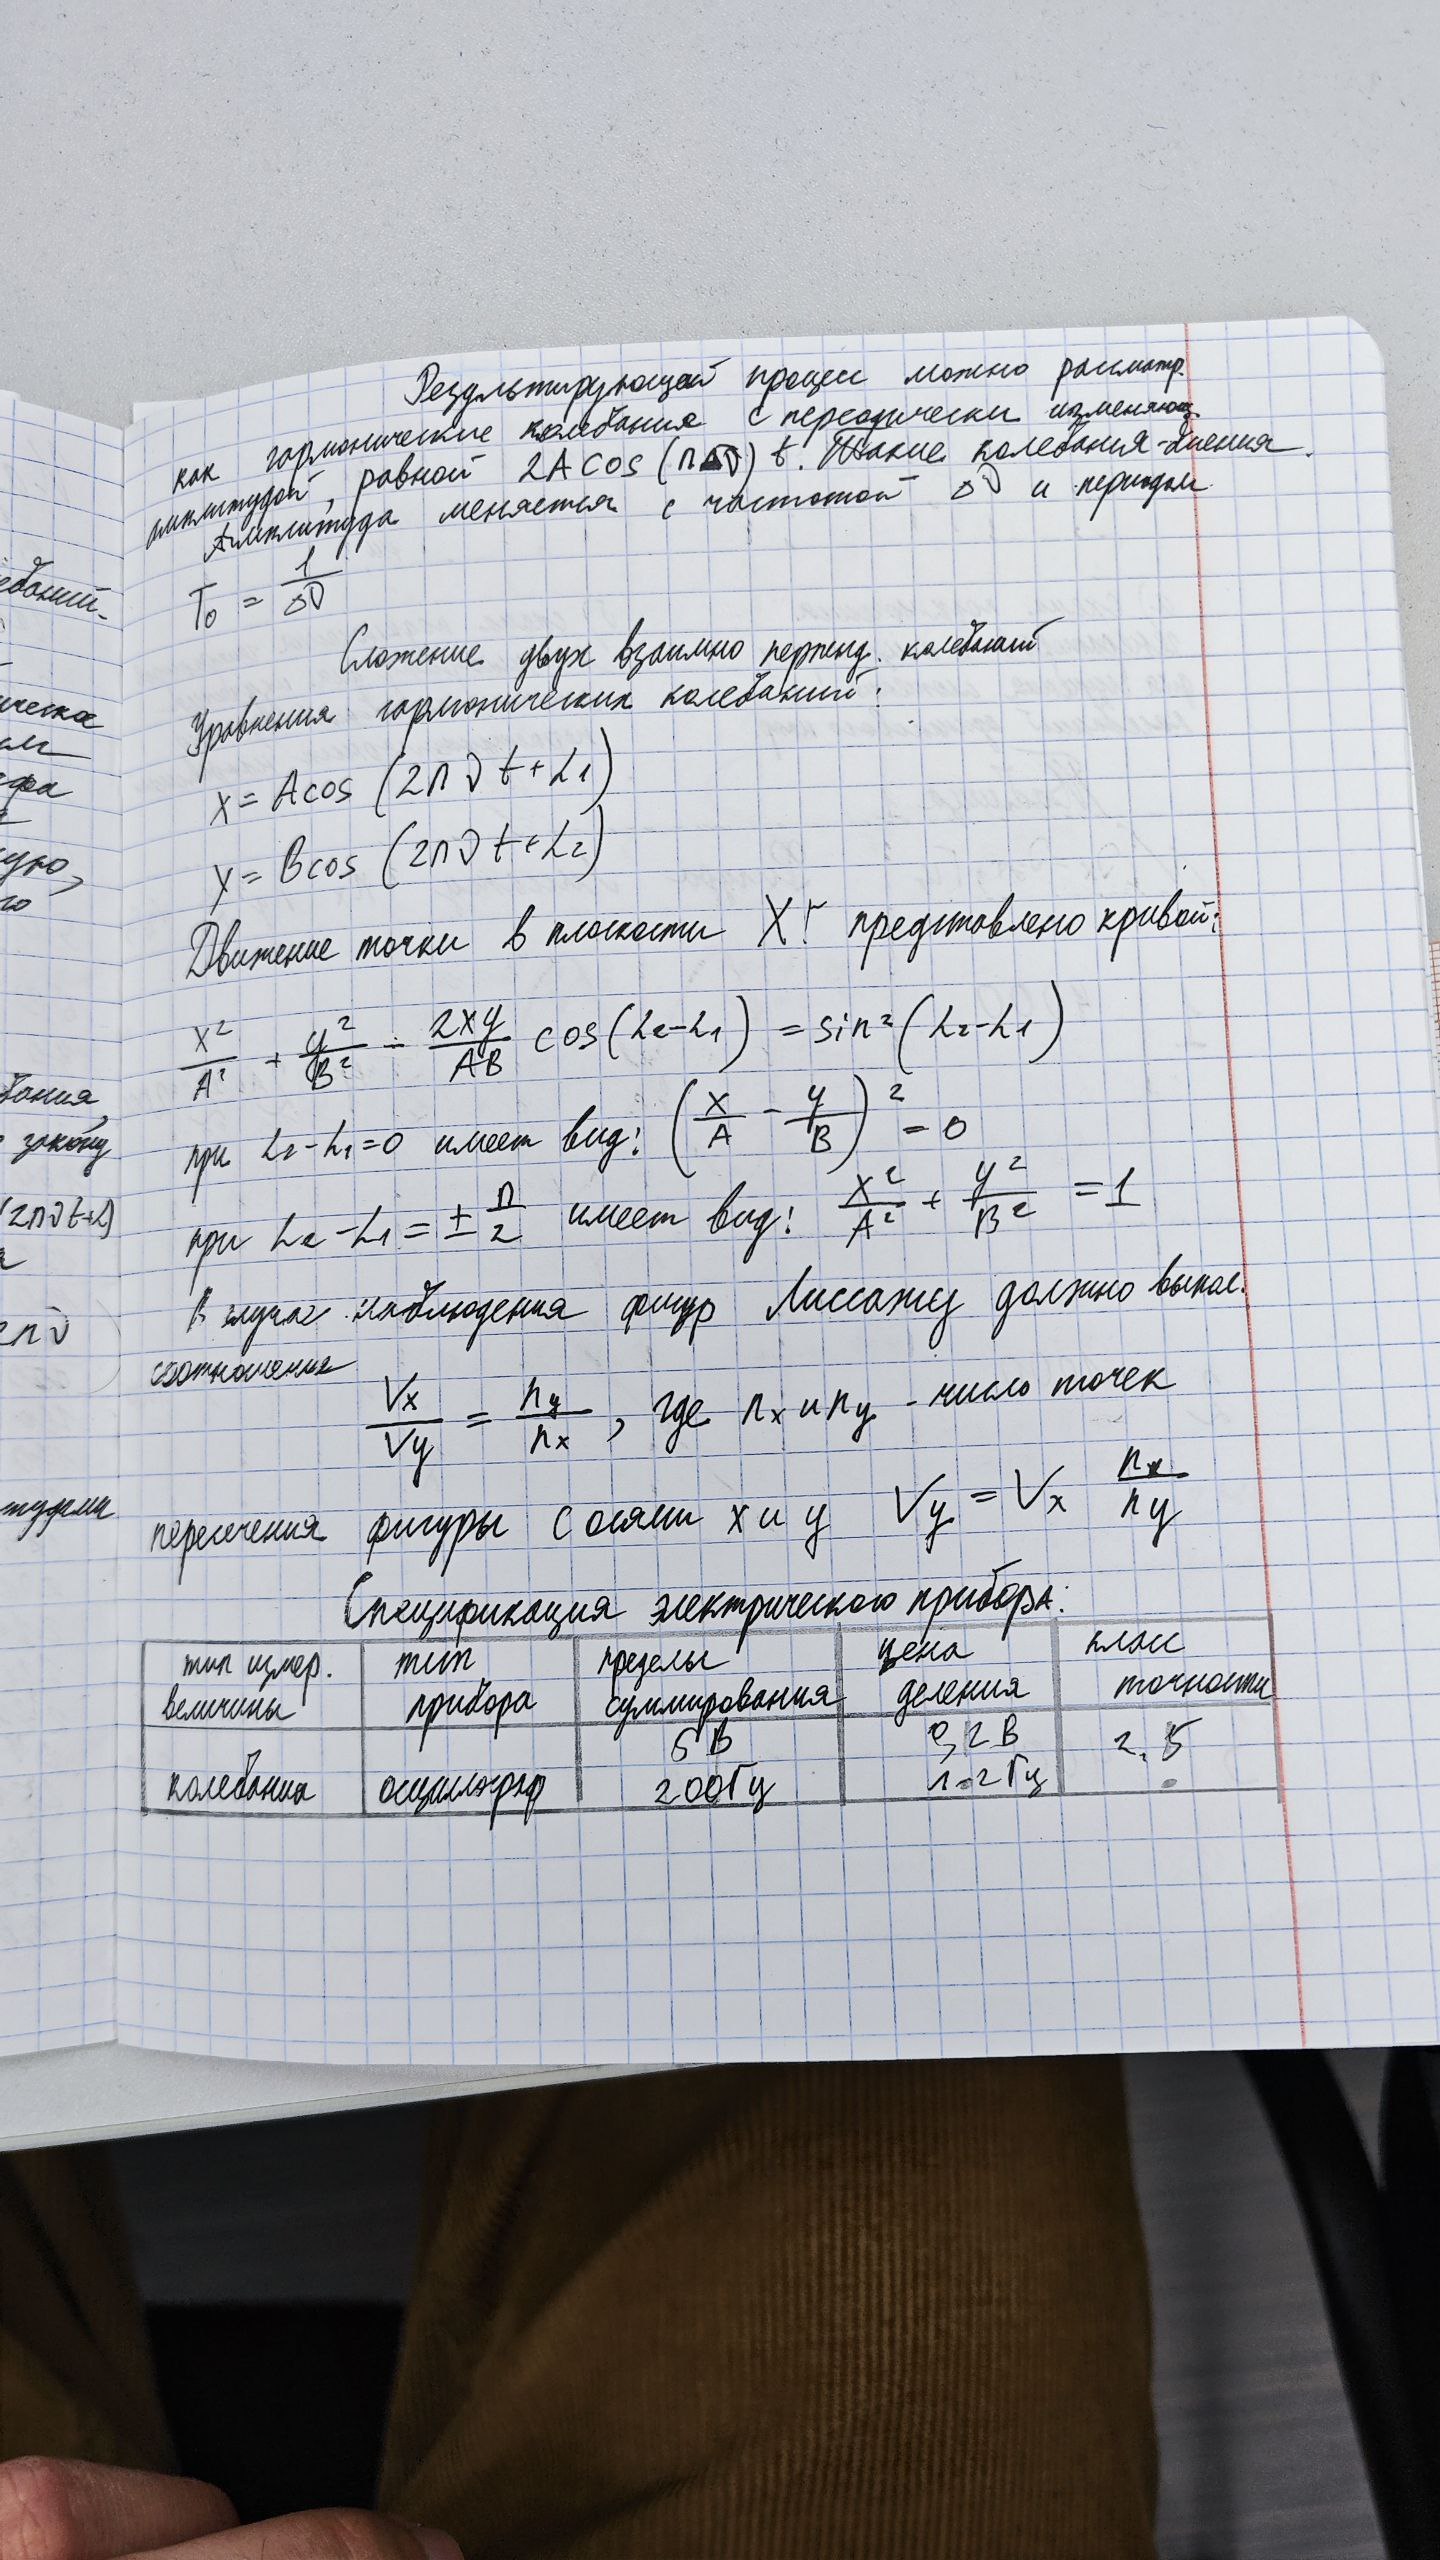 Результирующий процесс можно рассматр.
как гармонические колебания с переодически изменяющ.
амплитудой, равной 2A cos (πΔν) t. Такие колебания-биения.
Амплитуда меняется с частотой Δν и периодом
T₀ = 1/Δν
Сложение двух взаимно перпенд. колебаний
Уравнения гармонических колебаний:
x = A cos (2πνt + α₁)
y = B cos (2πνt + α₂)
Движение точки в плоскости XY представлено кривой:
x²/A² + y²/B² - 2xy/AB cos(α₂-α₁) = sin²(α₂-α₁)
при α₂-α₁=0 имеет вид: (x/A - y/B)² = 0
при α₂-α₁ = ± π/2 имеет вид: x²/A² + y²/B² = 1
В случае наблюдения фигур Лиссажу должно выпол.
соотношение
Vx/Vy = ny/nx, где nx и ny - число точек
пересечения фигуры с осями x и y Vy = Vx nx/ny
Спецификация электрического прибора:
тип измер. величины тип прибора пределы суммирования цена деления клас точности
колебания осциллограф 5 В 200 Гц 0,2 В 1.2 Гц 2,5
ебаний-
ическа
ифа
ую,
го
бания,
закону
(2πνt+α)
2πν
тудами